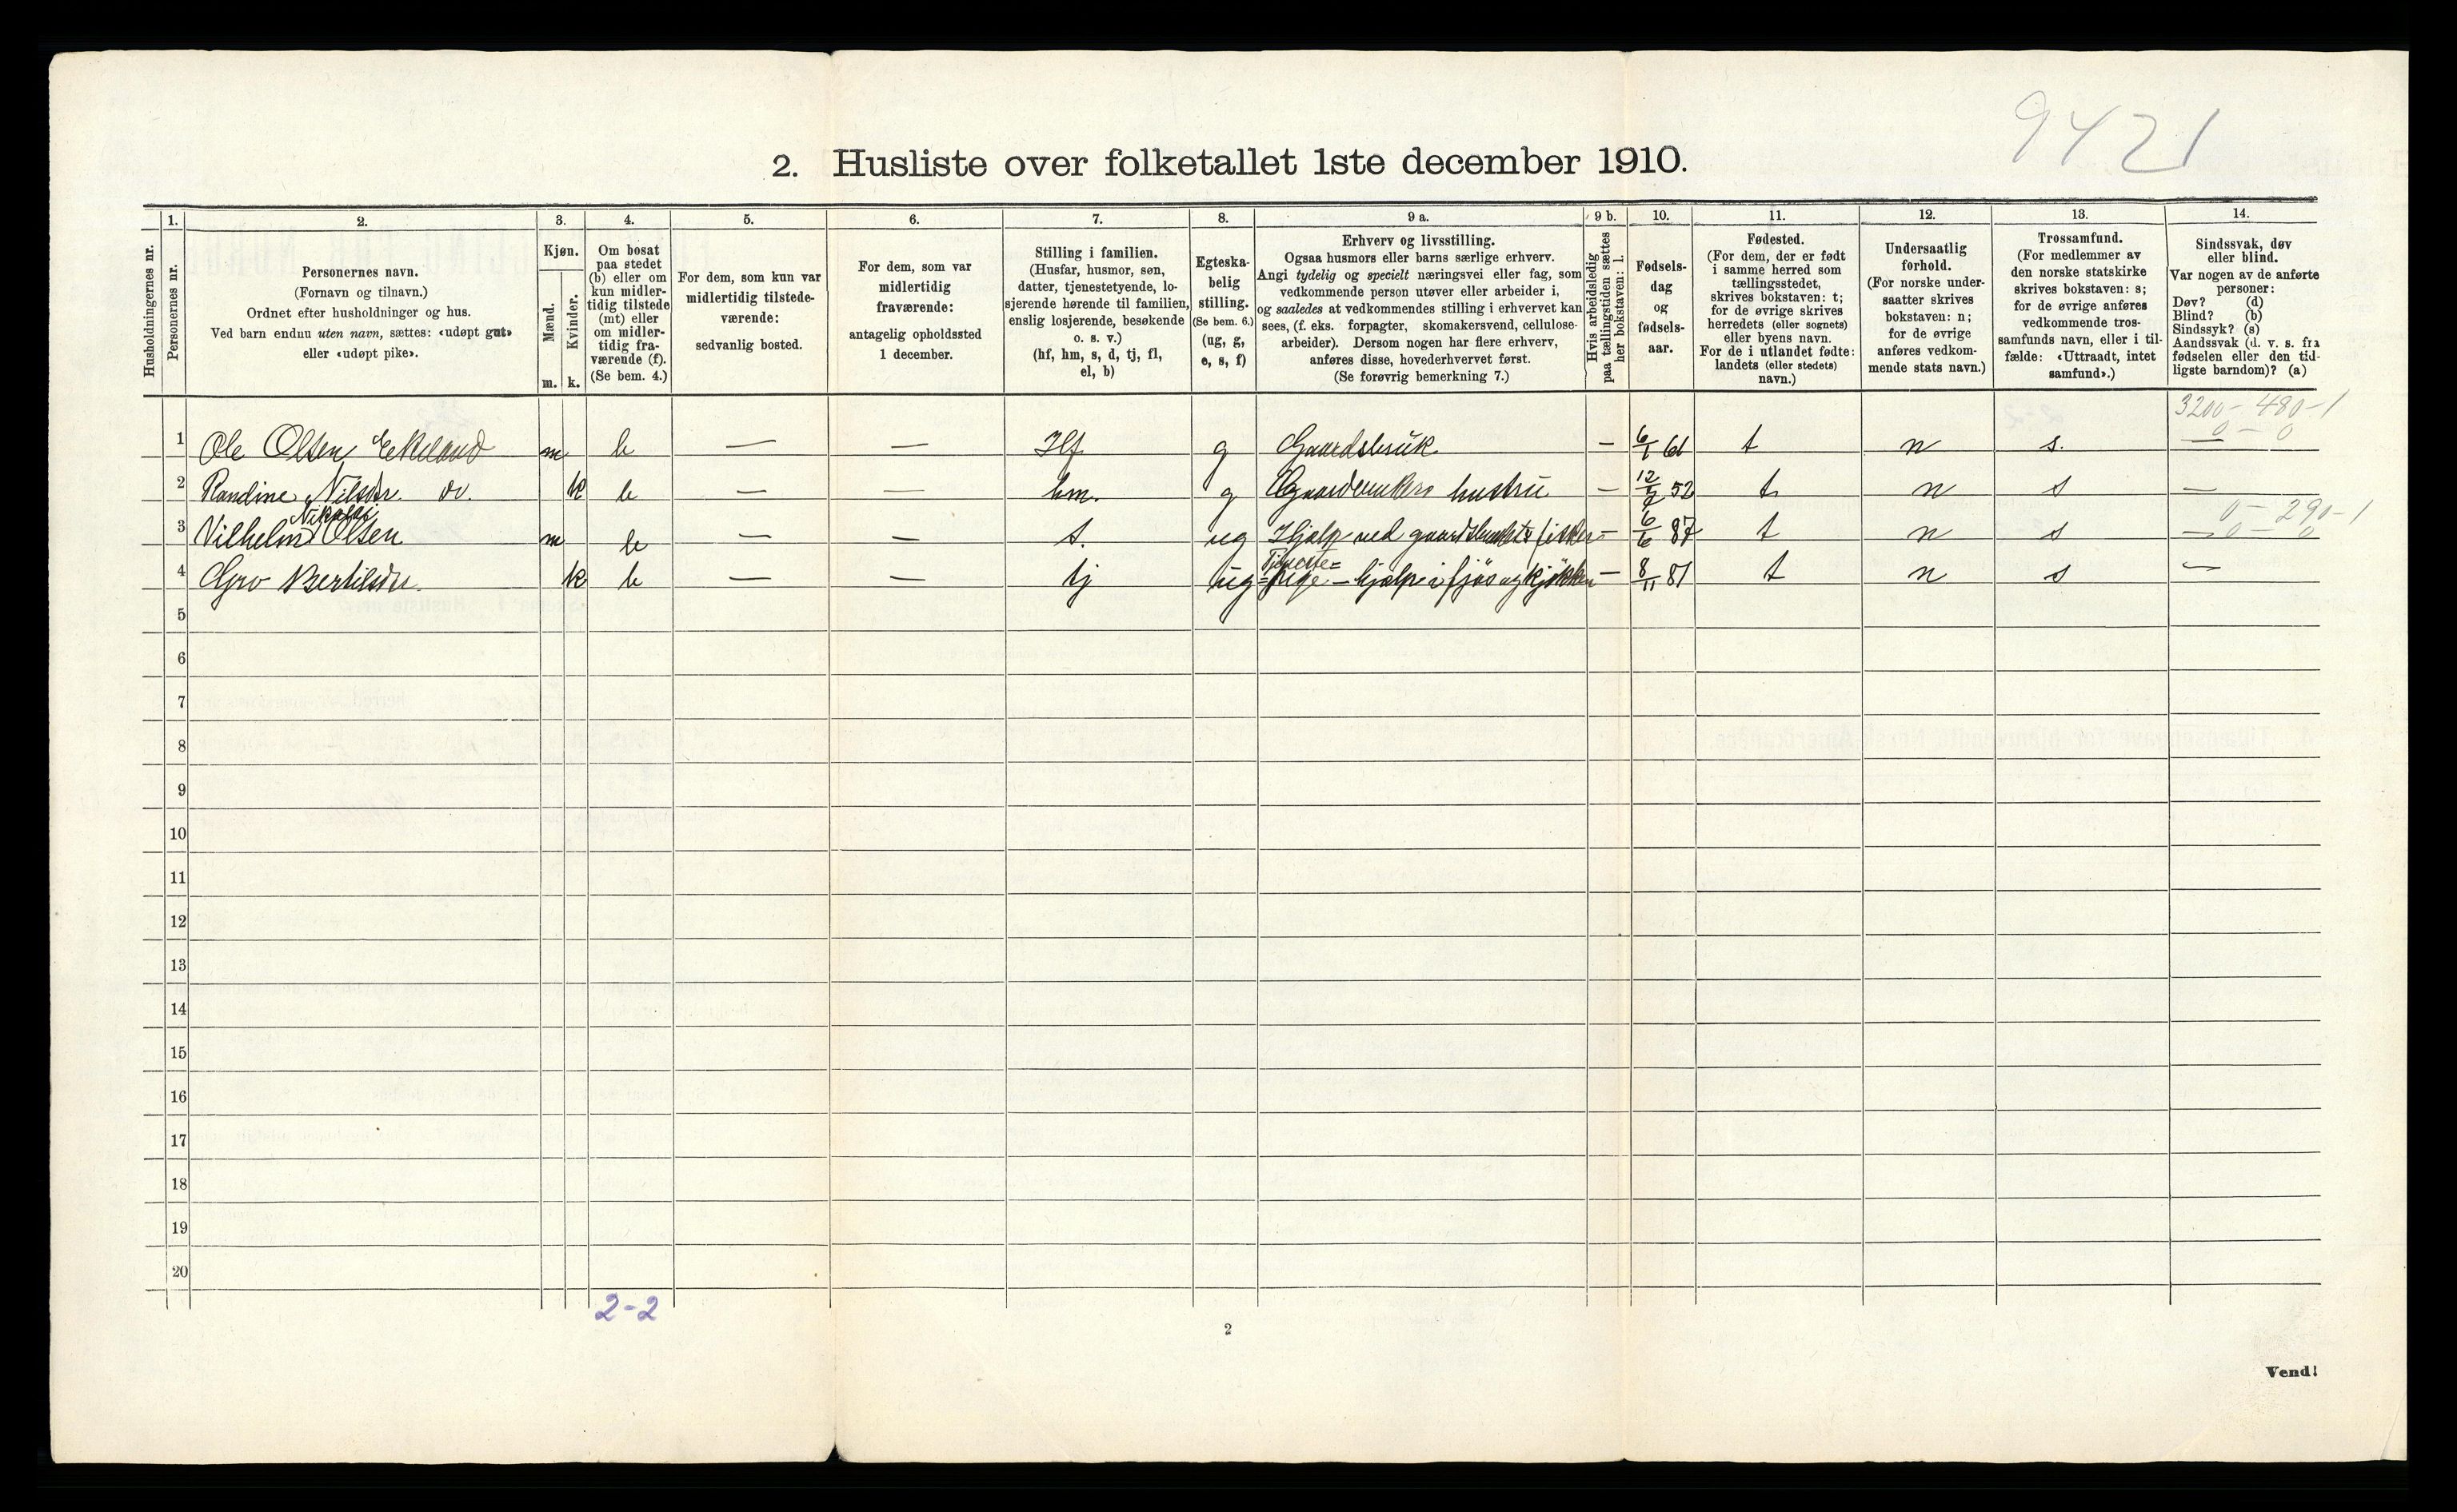 9421
2. Husliste over folketallet 1ste december 1910.
1. 2. 3. 4. 5. 6. 7. 8. 9 a. 9 b. 10. 11. 12. 13. 14.
Husholdningernes nr.
Personernes nr.
Personernes navn.
(Fornavn og tilnavn.)
Ordnet efter husholdninger og hus.
Ved barn endnu uten navn, sættes: «udøpt gut»
eller «udøpt pike».
Kjøn.
Mænd.
Kvinder.
m. k.
Om bosat
paa stedet
(b) eller om
kun midler-
tidig tilstede
(mt) eller
om midler-
tidig fra-
værende (f).
(Se bem. 4.)
For dem, som kun var
midlertidig tilstede-
værende:
sedvanlig bosted.
For dem, som var
midlertidig
fraværende:
antagelig opholdssted
1 december.
Stilling i familien.
(Husfar, husmor, søn,
datter, tjenestetyende, lo-
sjerende hørende til familien,
enslig losjerende, besøkende
o. s. v.)
(hf, hm, s, d, tj, fl,
el, b)
Egteska-
belig
stilling.
(Se bem. 6.)
(ug, g,
e, s, f)
Erhverv og livsstilling.
Ogsaa husmors eller barns særlige erhverv.
Angi tydelig og specielt næringsvei eller fag, som
vedkommende person utøver eller arbeider i,
og saaledes at vedkommendes stilling i erhvervet kan
sees, (f. eks. forpagter, skomakersvend, cellulose-
arbeider). Dersom nogen har flere erhverv,
anføres disse, hovederhvervet først.
(Se forøvrig bemerkning 7.)
Hvis arbeidsledig
paa tællingstiden sættes
her bokstaven: l.
Fødsels-
dag
og
fødsels-
aar.
Fødested.
(For dem, der er født
i samme herred som
tællingsstedet,
skrives bokstaven: t;
for de øvrige skrives
herredets (eller sognets)
eller byens navn.
For de i utlandet fødte:
landets (eller stedets)
navn.)
Undersaatlig
forhold.
(For norske under-
saatter skrives
bokstaven: n;
for de øvrige
anføres vedkom-
mende stats navn.)
Trossamfund.
(For medlemmer av
den norske statskirke
skrives bokstaven: s;
for de øvrige anføres
vedkommende tros-
samfunds navn, eller i til-
fælde: «Uttraadt, intet
samfund».)
Sindssvak, døv
eller blind.
Var nogen av de anførte
personer:
Døv? (d)
Blind? (b)
Sindssyk? (s)
Aandssvak (d. v. s. fra
fødselen eller den tid-
ligste barndom)? (a)
3200 - 480 - 1
0 - 0
1 Ole Olsen Ekeland m b — — Hf g Gaardsbruk — 6/1 61 t n s. —
2 Randine Nilsdtr. do. k b — — hm. g Gaardbrukers hustru — 12/2 52 t n s —
Nikolai
0 - 290 - 1
3 Vilhelm Olsen m b — — s. ug Hjælp ved gaardsbruket & fisker — 6/6 87 t n s — 0 - 0
Tjeneste=
4 Gro Bertilsdtr. k b — — tj ug =pige - hjælpe i fjøs og kjøkken — 8/11 81 t n s —
5
6
7
8
9
10
11
12
13
14
15
16
17
18
19
20
2-2
2
Vend!